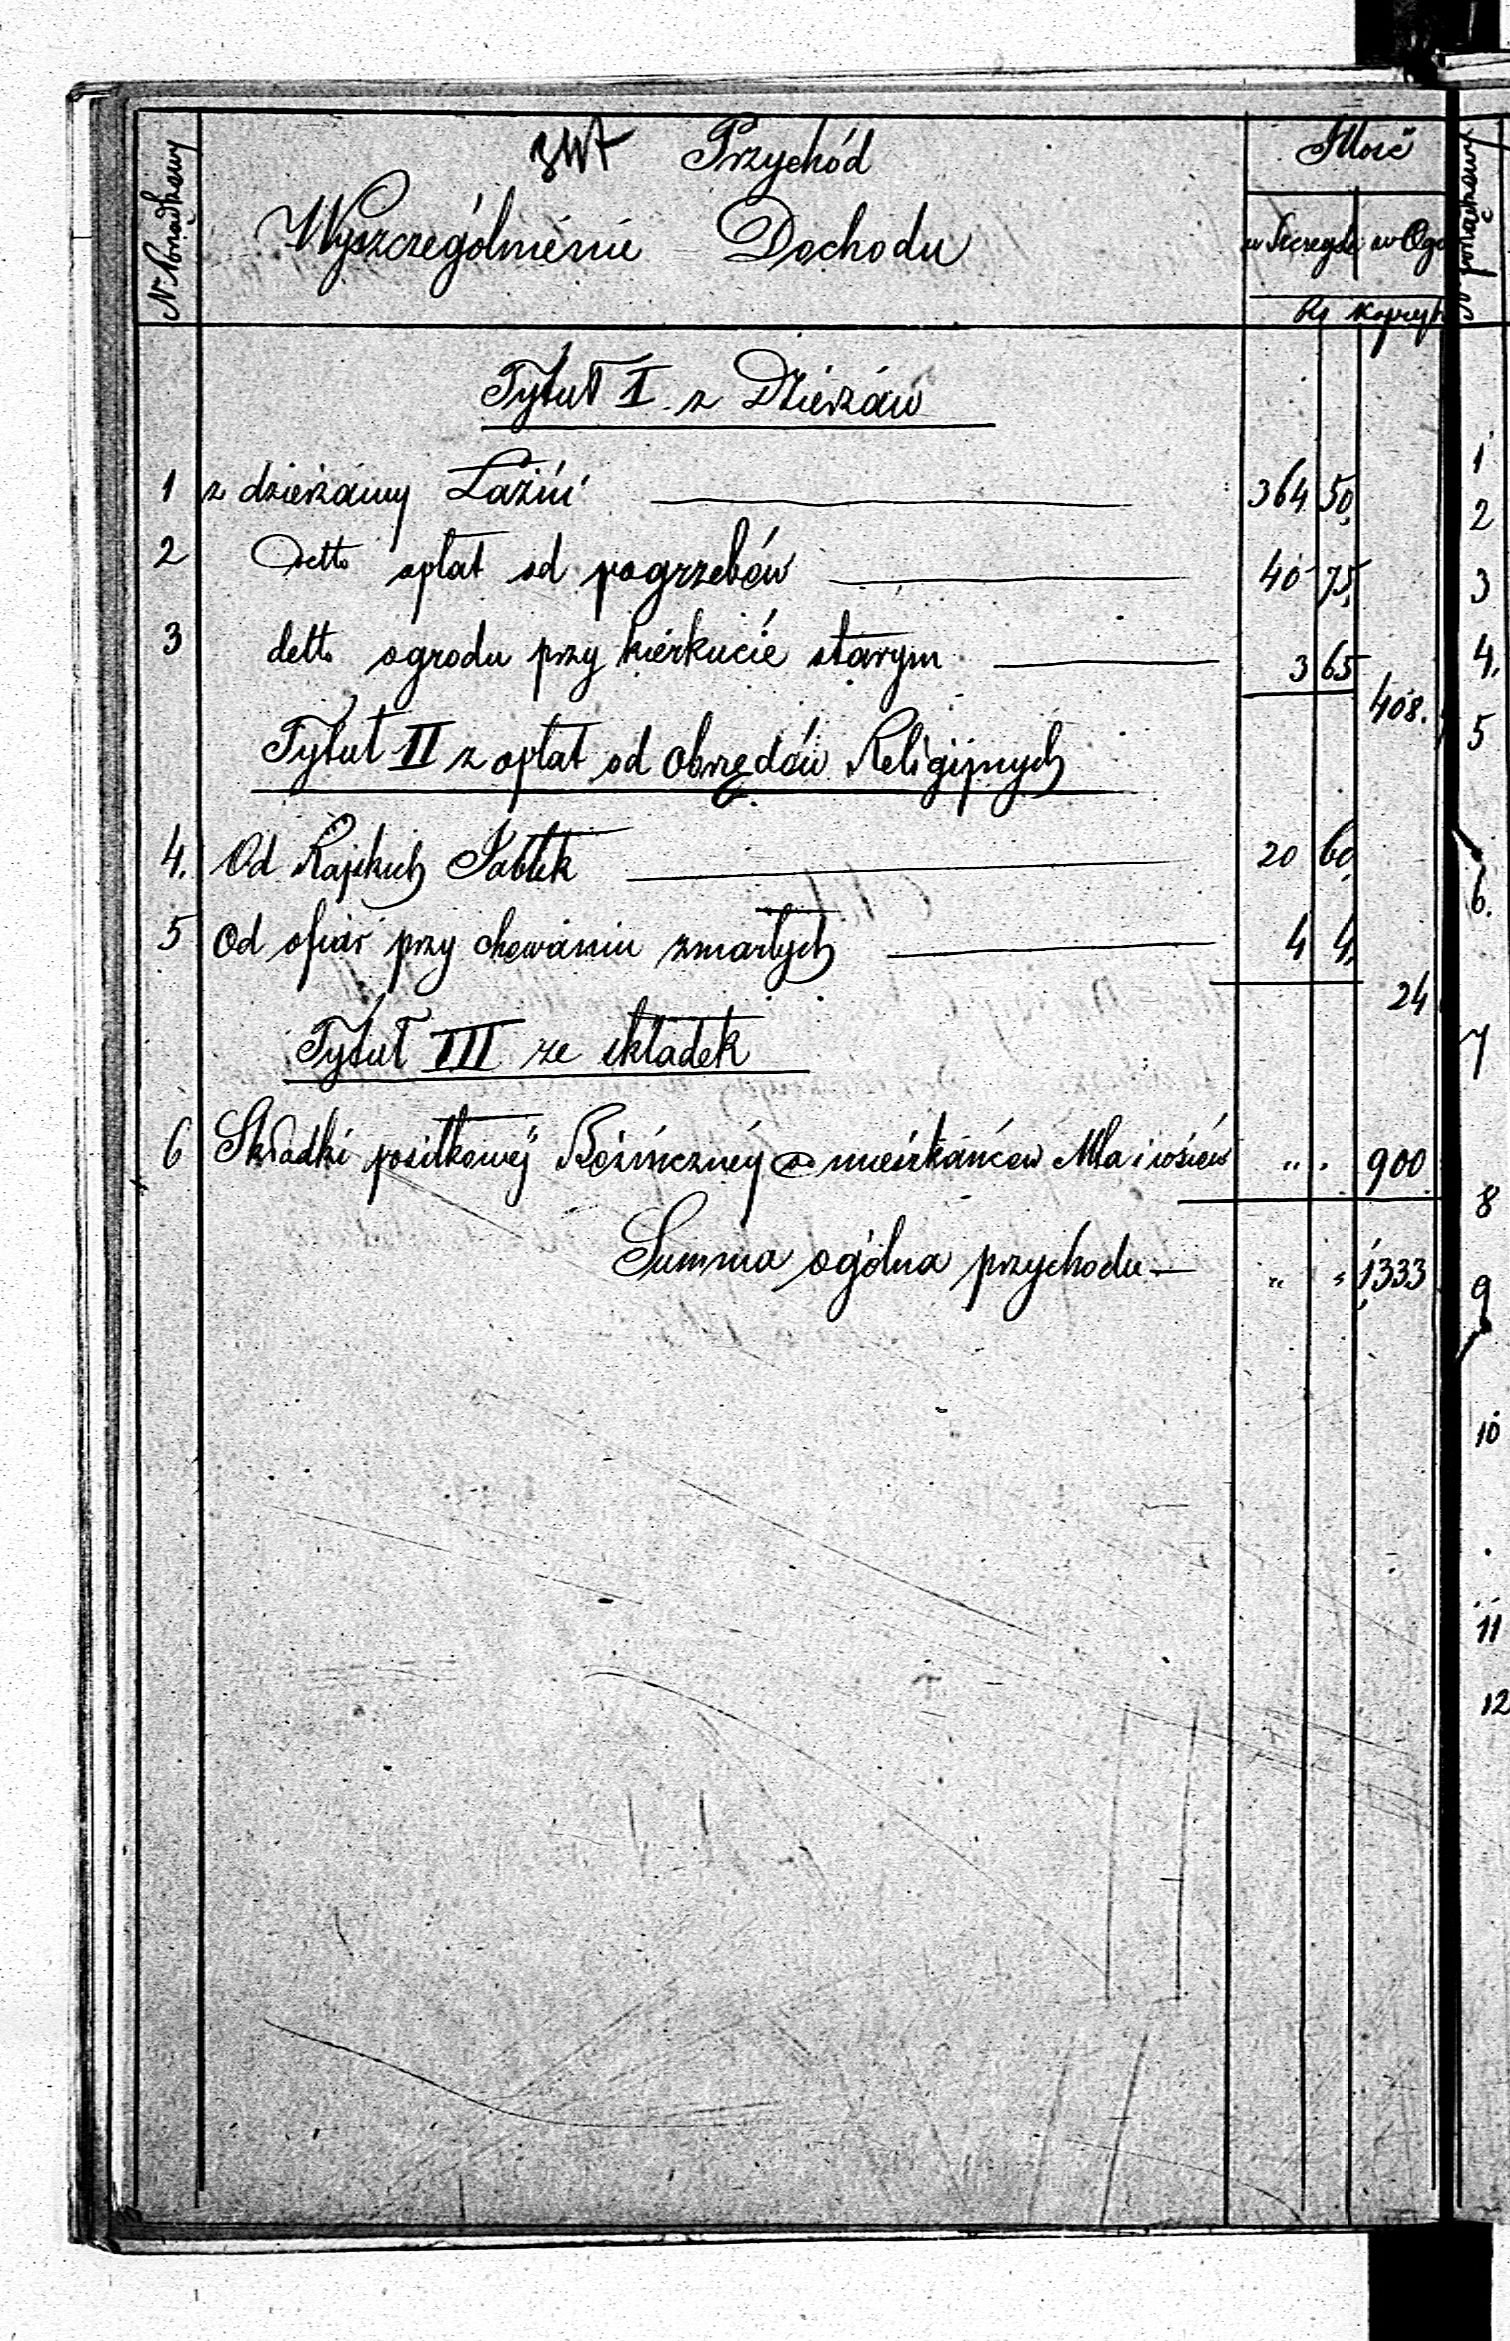 Przychód
Ilość
Nr Porządkowy
Wyszczególnienie Dochodu
w Szczególe w Ogó
Rs Kopiejk
Tytuł I z Dzierżaw
1 z dzierżawy Łaźni 364 50
2 Detto opłat od pogrzebów 40 75
3 detto ogrodu przy kierkucie starym 3 65
408.
Tytuł II z opłat od obrzędów Religijnych
4. Od Rajskich Jabłek 20 60
5 Od ofiar przy chowaniu zmarłych 4 4
24
Tytuł III ze składek
6 Składki posiłkowej Bóżniczney od mieszkańców Mta i wsiów „ „ 900
Summa ogólna przychodu „ „ 1333
porządkowy
1
2
3
4.
5
6.
7
8
9
10
11
12